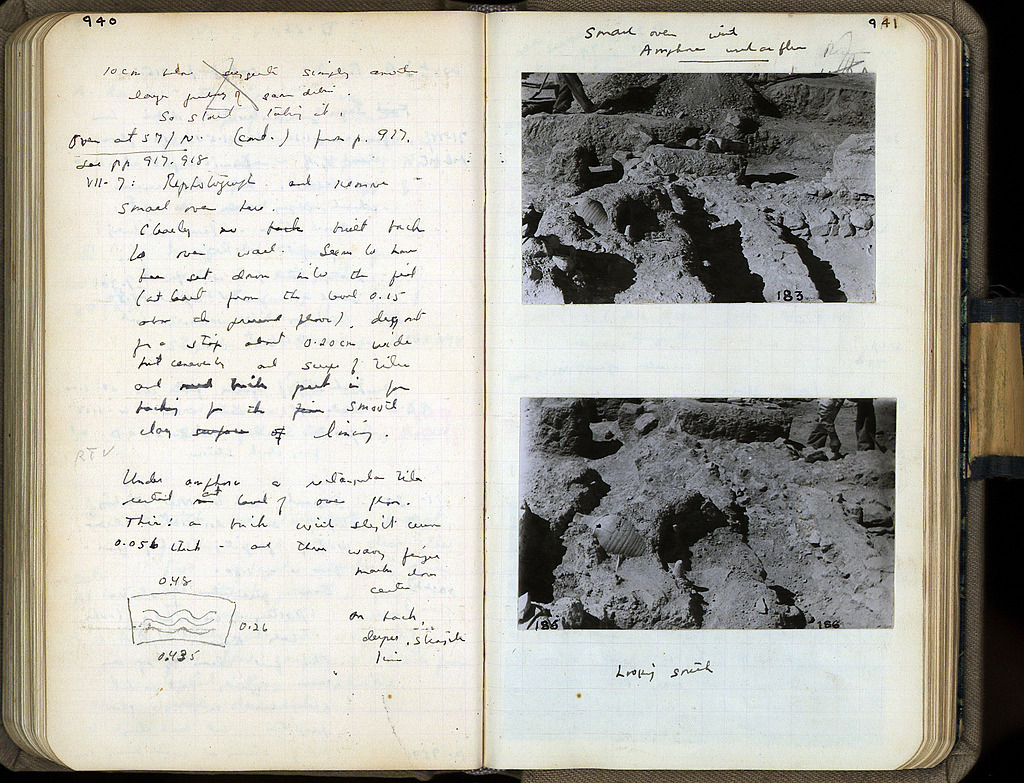 940
10 cm below simply another
large of same debris.
So start taking it.
Oven at 57/N. (cont.) from p. 927.
see pp 917-918
VII-7: Rephotograph and remove
small oven here.
Clearly no back built back
to oven wall. Seems to have
been set down into the fill
(at least from the level 0.15
above the present floor). dug out
for a strip about 0.20cm wide
but unevenly and scraps of tiles
and mud brick put in for
backing for the fine smooth
clay surface of lining.
RTV
Under amphora a rectangular tile
at level of oven floor.
This: a brick with slight curve
0.056 thick - and three wavy finger
marks down
center
on back,
deeper, straight
line
0.48
0.26
0.435
941
Small oven with
Amphora under floor
183
185
186
Looking south